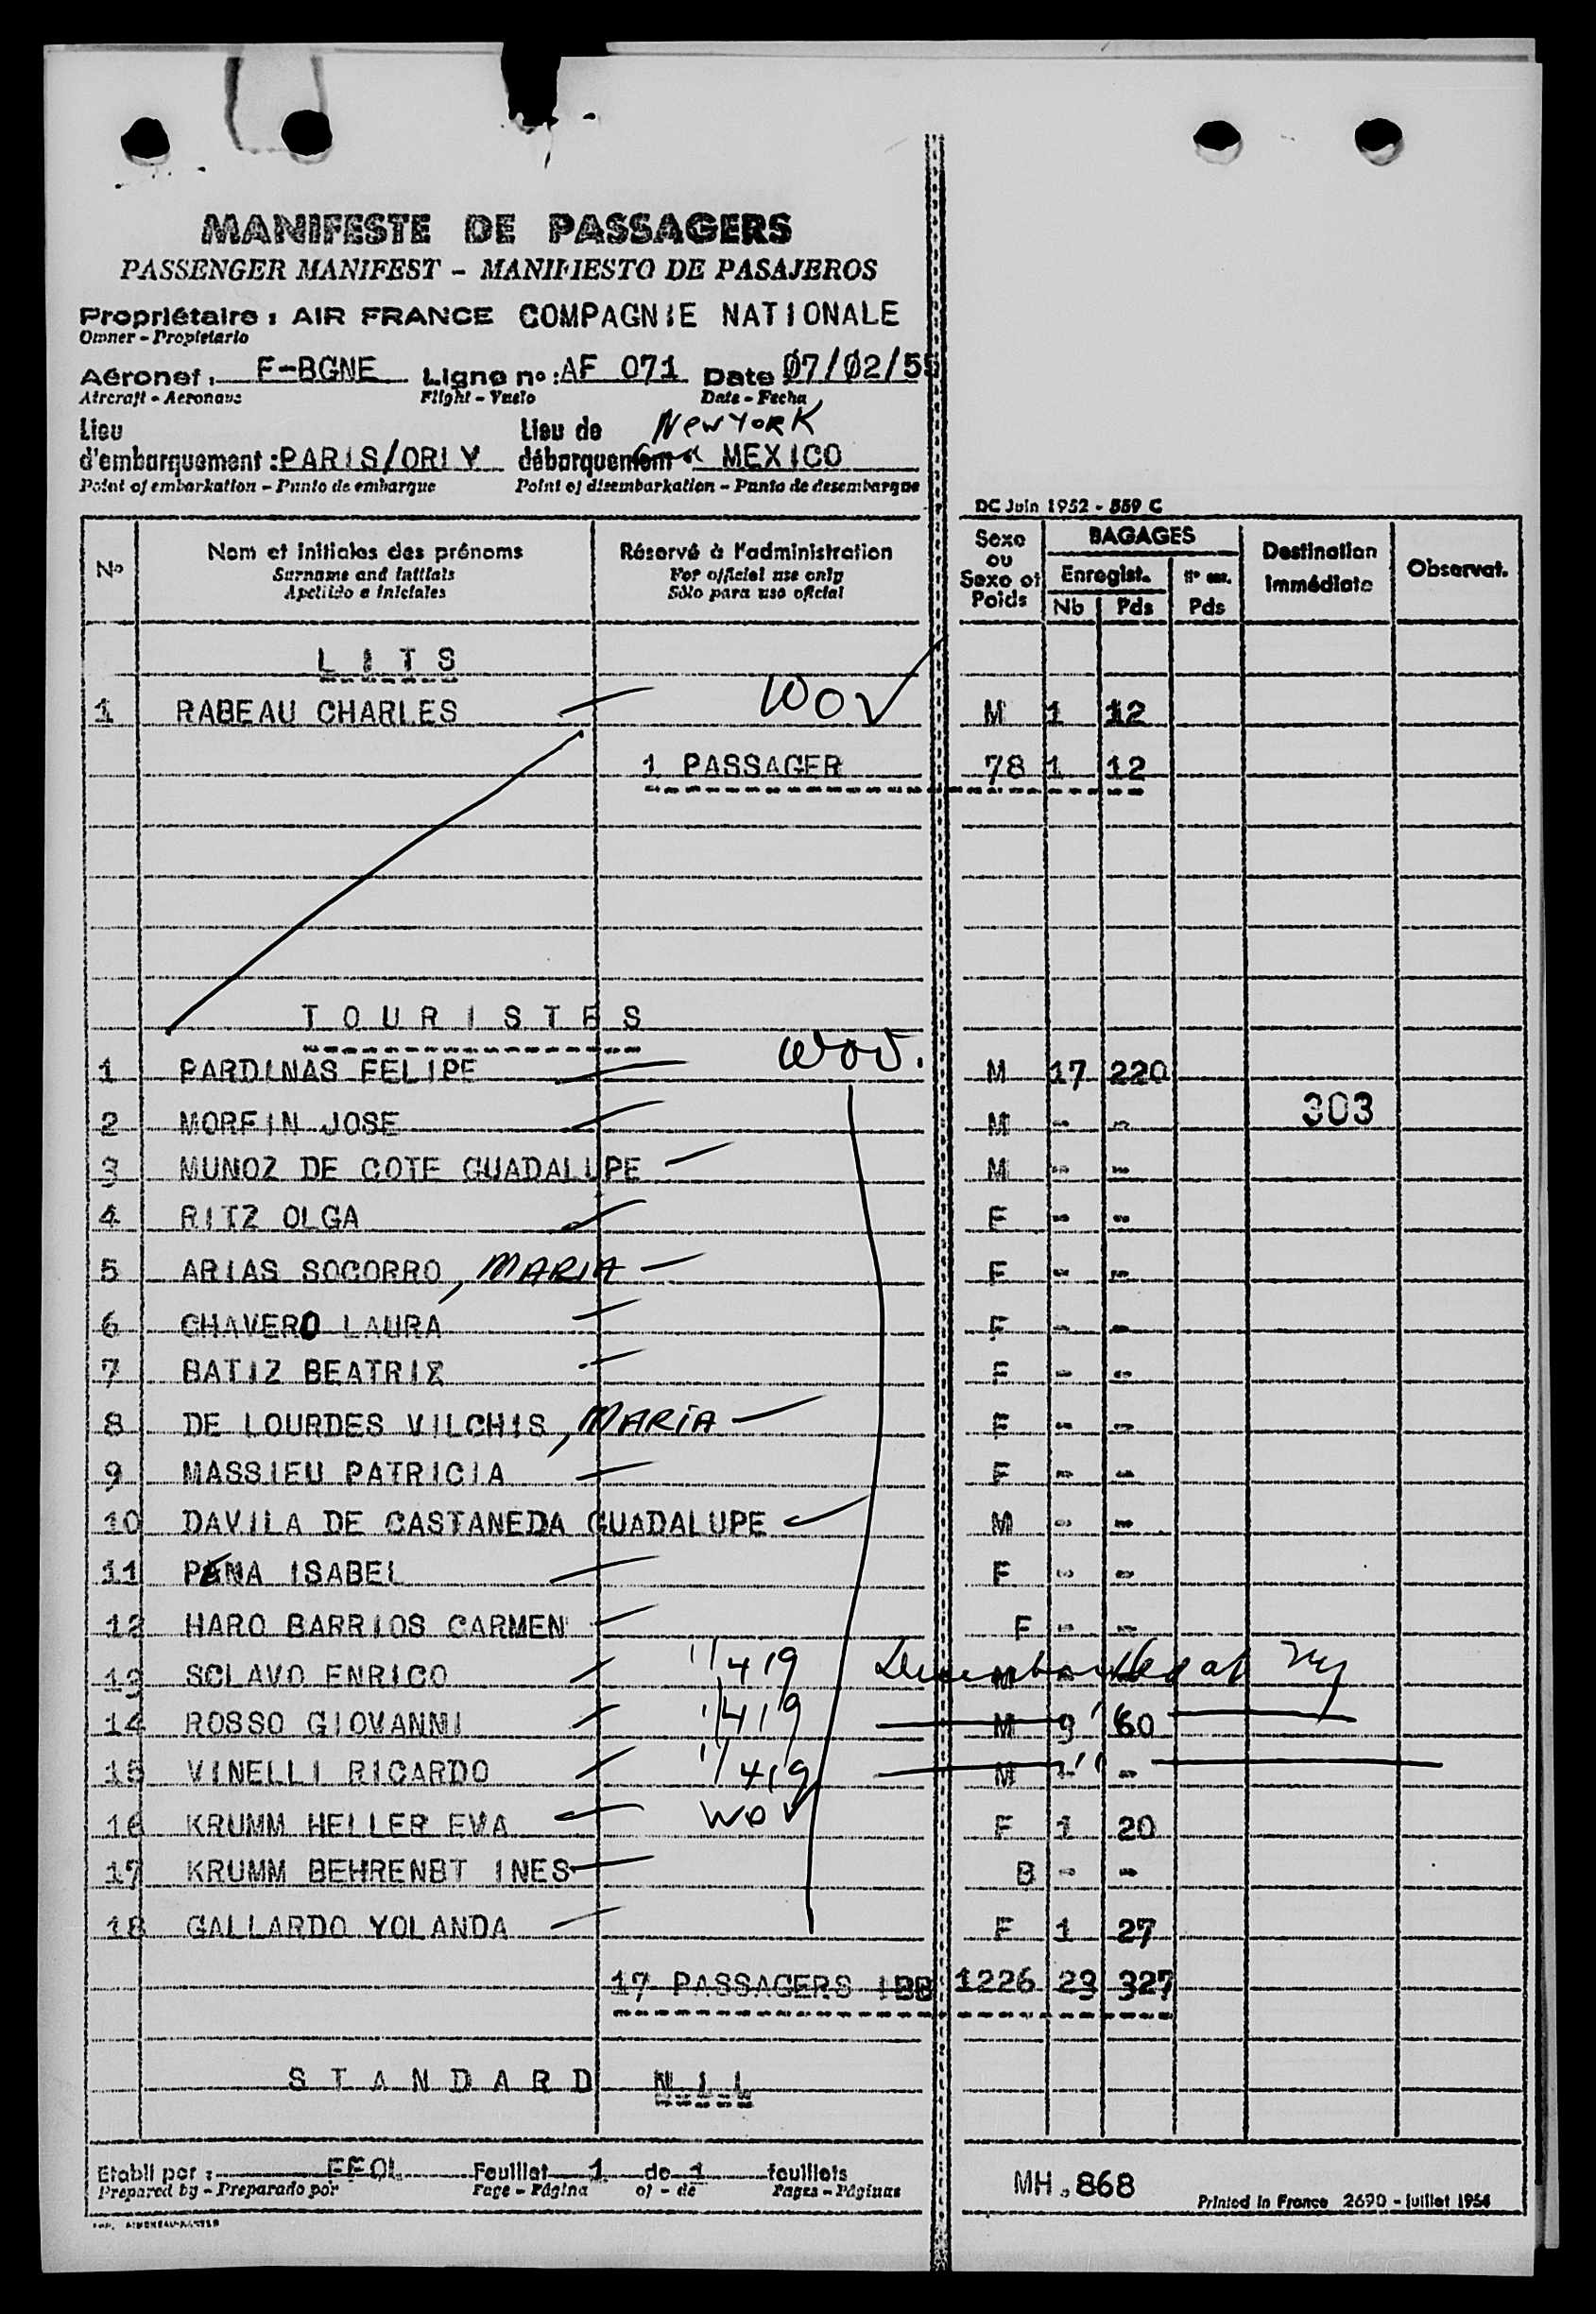 MANIFESTE DE PASSAGERS
PASSENGER MANIFEST - MANIFIESTO DE PASAJEROS
Propriétaire : AIR FRANCE COMPAGNIE NATIONALE
Owner - Propietario
Aéronef : F-BGNE Ligne n° : AF 071 Date 07/02/55
Aircraft - Aeronave Flight - Vuelo Date - Fecha
Lieu Lieu de New York
d'embarquement : PARIS/ORLY débarquement and MEXICO
Point of embarkation - Punto de embarque Point of disembarkation - Punto de desembarque
DC Juin 1952 - 559 C
N° Nom et initiales des prénoms Réservé à l'administration Sexe ou Sexe et Poids BAGAGES Destination immédiate Observat.
Surname and initials For official use only Enregist. N° enr.
Apellido e iniciales Sólo para uso oficial Nb Pds Pds
LITS
1 RABEAU CHARLES WOV M 1 12
1 PASSAGER 78 1 12
TOURISTES
1 PARDINAS FELIPE WOV. M 17 220
2 MORFIN JOSE M - - 303
3 MUNOZ DE COTE GUADALUPE M - -
4 RITZ OLGA F - -
5 ARIAS SOCORRO, MARIA F - -
6 CHAVERO LAURA F - -
7 BATIZ BEATRIZ F - -
8 DE LOURDES VILCHIS, MARIA F - -
9 MASSIEU PATRICIA F - -
10 DAVILA DE CASTANEDA GUADALUPE M - -
11 PENA ISABEL F - -
12 HARO BARRIOS CARMEN F - -
13 SCLAVO ENRICO 1/419 Disembarked at NY M - -
14 ROSSO GIOVANNI 1/419 M 9 60
15 VINELLI RICARDO 1/419 M - -
16 KRUMM HELLER EVA WOV F 1 20
17 KRUMM BEHRENBT INES B - -
18 GALLARDO YOLANDA F 1 27
17 PASSAGERS 1BB 1226 23 327
STANDARD NIL
Etabli par : FFOL Feuillet 1 de 1 feuillets
Prepared by - Preparado por Page - Página of - de Pages - Páginas
MH.868
Printed in France 2690 - juillet 1954